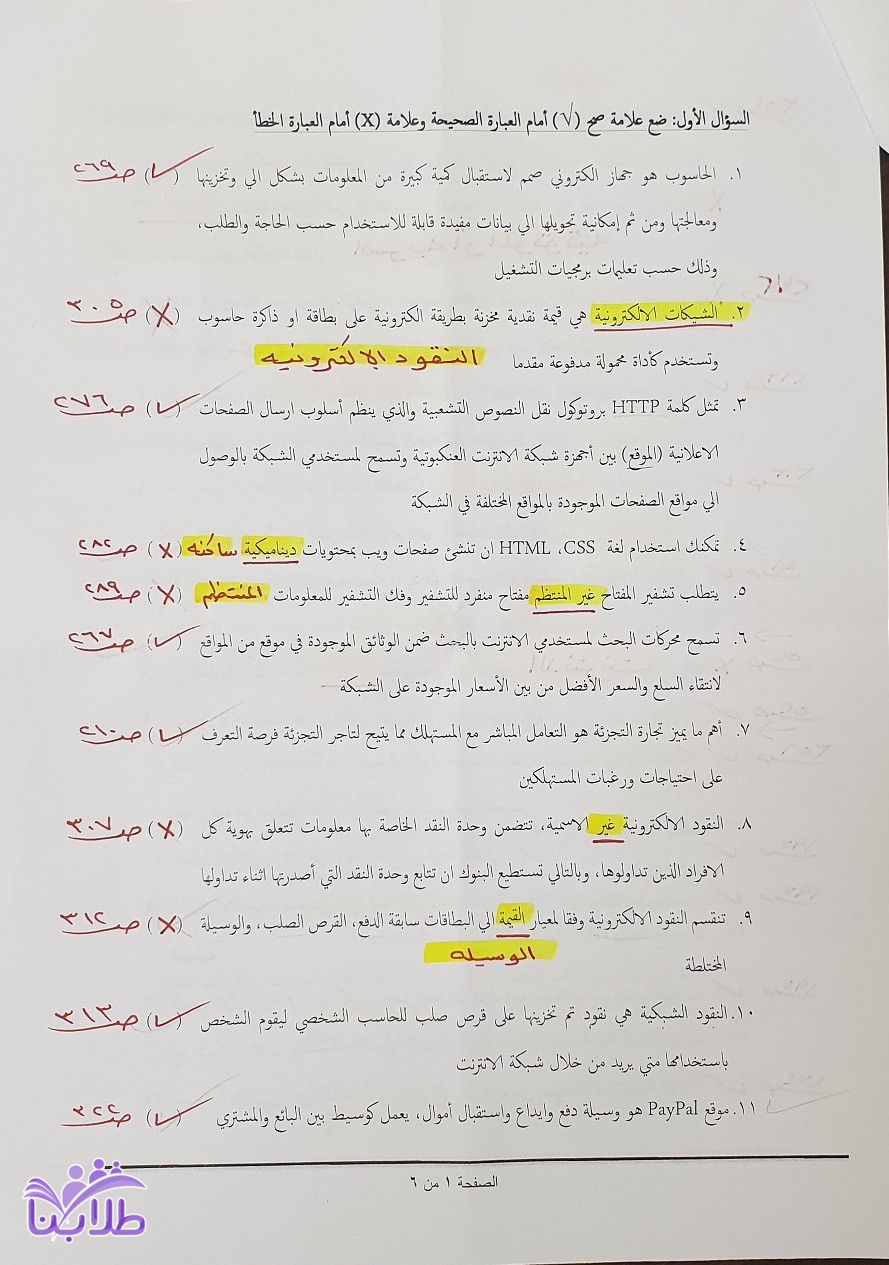 السؤال الأول: ضع علامة صح (√) أمام العبارة الصحيحة وعلامة (X) أمام العبارة الخطأ
١. الحاسوب هو جهاز الكتروني صمم لاستقبال كمية كبيرة من المعلومات بشكل الي وتخزينها (✓) صـ ٢٦٩
ومعالجتها ومن ثم إمكانية تحويلها الي بيانات مفيدة قابلة للاستخدام حسب الحاجة والطلب،
وذلك حسب تعليمات برمجيات التشغيل
٢. الشيكات الالكترونية هي قيمة نقدية مخزنة بطريقة الكترونية على بطاقة او ذاكرة حاسوب (X) صـ ٣٠٥
وتستخدم كأداة محمولة مدفوعة مقدما النقود الإلكترونيه
٣. تمثل كلمة HTTP بروتوكول نقل النصوص التشعبية والذي ينظم أسلوب ارسال الصفحات (✓) صـ ٢٧٦
الاعلانية (الموقع) بين أجهزة شبكة الانترنت العنكبوتية وتسمح لمستخدمي الشبكة بالوصول
الي مواقع الصفحات الموجودة بالمواقع المختلفة في الشبكة
٤. تمكنك استخدام لغة HTML ،CSS ان تنشئ صفحات ويب بمحتويات ديناميكية ساكنه (X) صـ ٢٨٢
٥. يتطلب تشفير المفتاح غير المنتظم مفتاح منفرد للتشفير وفك التشفير للمعلومات المنتظم (X) صـ ٢٨٩
٦. تسمح محركات البحث لمستخدمي الانترنت بالبحث ضمن الوثائق الموجودة في موقع من المواقع (✓) صـ ٢٦٧
لانتقاء السلع والسعر الأفضل من بين الأسعار الموجودة على الشبكة
٧. أهم ما يميز تجارة التجزئة هو التعامل المباشر مع المستهلك مما يتيح لتاجر التجزئة فرصة التعرف (✓) صـ ٢١٠
على احتياجات ورغبات المستهلكين
٨. النقود الالكترونية غير الاسمية، تتضمن وحدة النقد الخاصة بها معلومات تتعلق بهوية كل (X) صـ ٣٠٧
الافراد الذين تداولوها، وبالتالي تستطيع البنوك ان تتابع وحدة النقد التي أصدرتها اثناء تداولها
٩. تنقسم النقود الالكترونية وفقا لمعيار القيمة الي البطاقات سابقة الدفع، القرص الصلب، والوسيلة (X) صـ ٣١٢
المختلطة الوسيله
١٠. النقود الشبكية هي نقود تم تخزينها على قرص صلب للحاسب الشخصي ليقوم الشخص (✓) صـ ٣١٣
باستخدامها متي يريد من خلال شبكة الانترنت
١١. موقع PayPal هو وسيلة دفع وايداع واستقبال أموال، يعمل كوسيط بين البائع والمشتري (✓) صـ ٣٢٢
الصفحة ١ من ٦
طلابنا